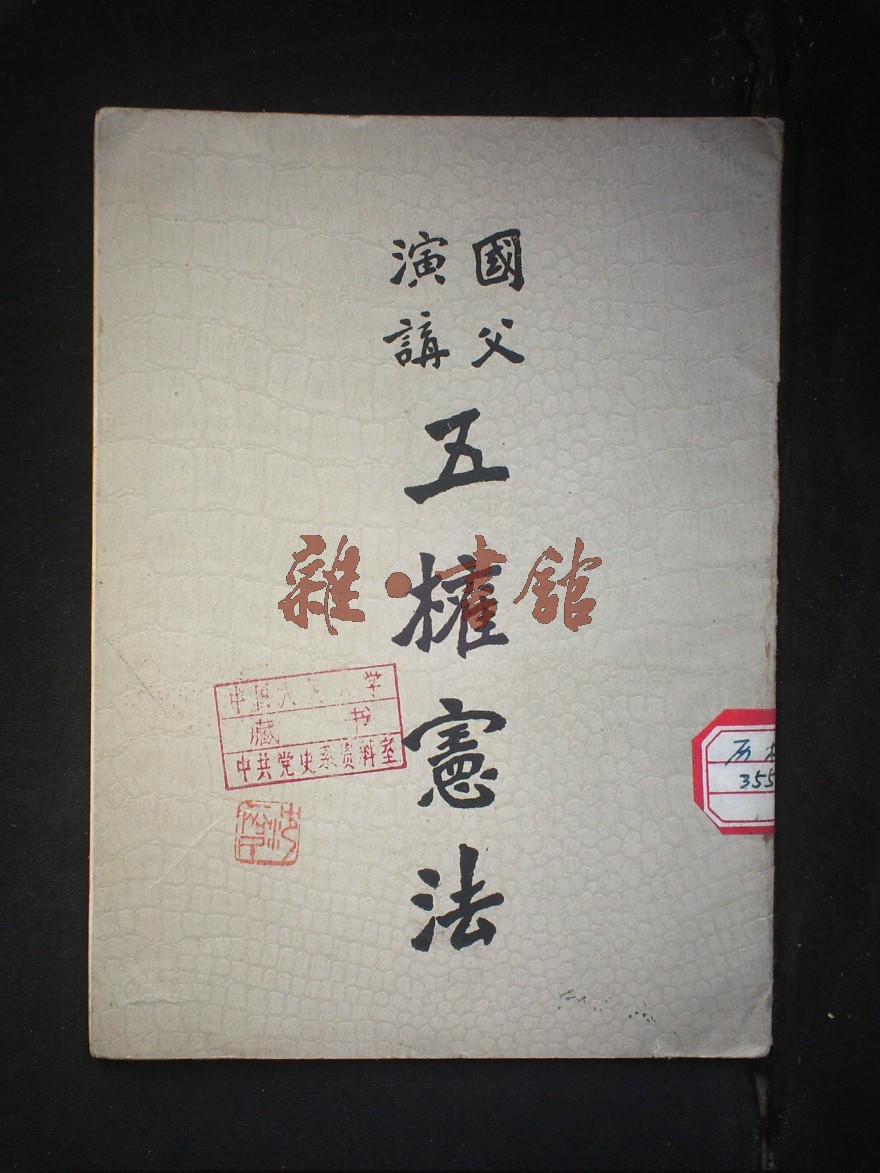 國父
演講
五權憲法
雜·書館
中国人民大学
藏书
中共党史系资料室
历
355